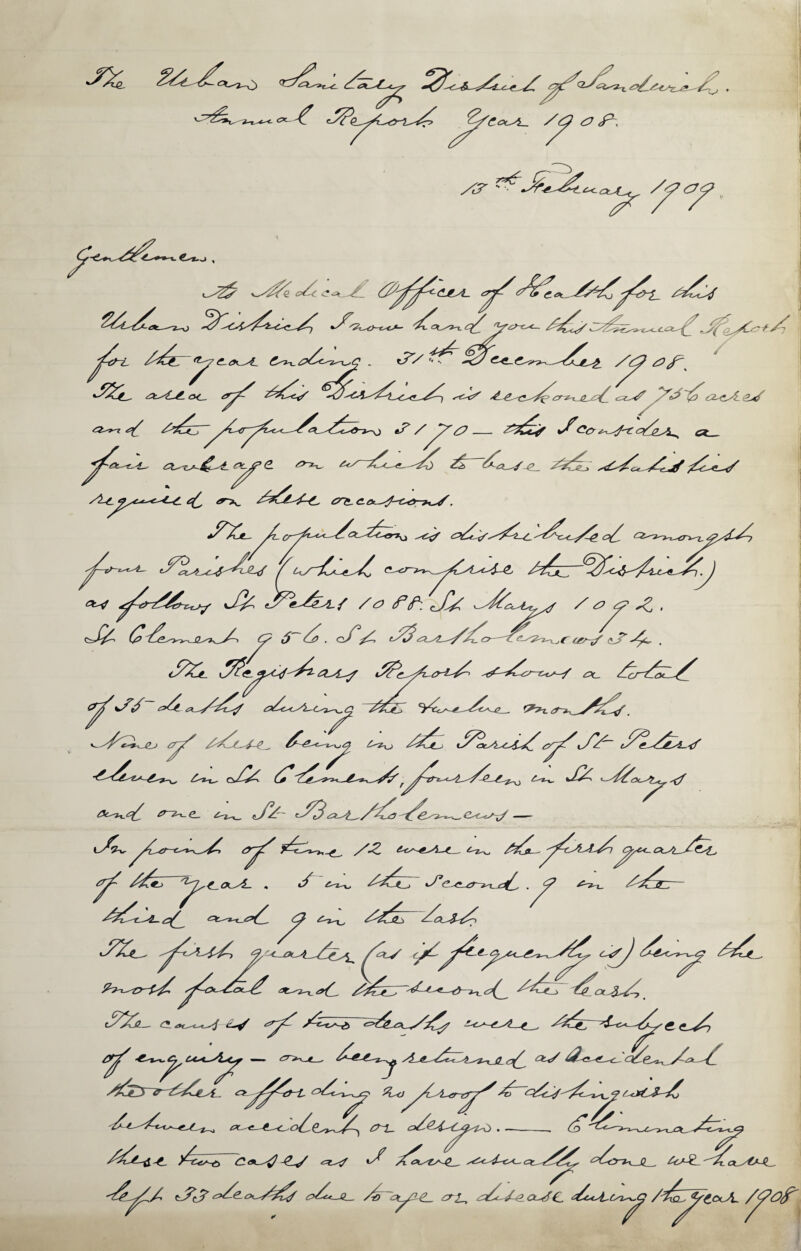 The Urban Sanitary District of Sandwich.
Annual Report Year 1908.
13th February 1909.
Gentlemen.
As Medical Officer of Health for this
Urban District I now hand you this Annual Report
for the year ending. 31st December 1908.
The area of this District is reckoned as 756 acres
and the population 3170 — this I consider a
fair average on which to base the statistics
required on these occasions.
The population is distributed amongst
four Parishes (which comprise the District.)
as follows St Peters 1088. St Marys 1092.
St Clement 956. St Bartholemews 34.
The Registrars Report shows a total
of 35 deaths during the twelve months.
Nine of these being in the Parish of St Peters
eleven in St Clements, fourteen in St Marys
and one in St Bartholemews —
In point of time 12 were in the first quarter
of the year. 5 in the Second. 9 in the
third and 9 in the last.
The first quarter (as it frequently is) being the
most fatal and the second the least.
The causes of two deaths were the subject
of enquiry — one being returned as Accidental
the other affording no proof to distinguish
between accident or design. — Eliminating
these two cases as I have usually done we have
left 33 deaths due to age or disease during the year 1908